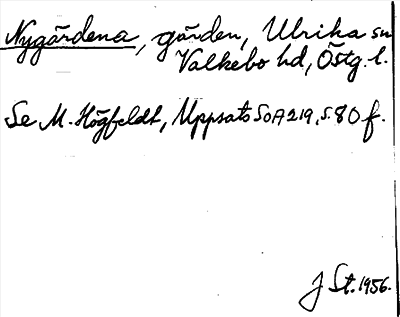 Nygårdena, gården, Ulrika sn
Valkebo hd, Östg. l.
Se M. Högfeldt, Uppsats SOA 219, s. 80 f.
J St. 1956.